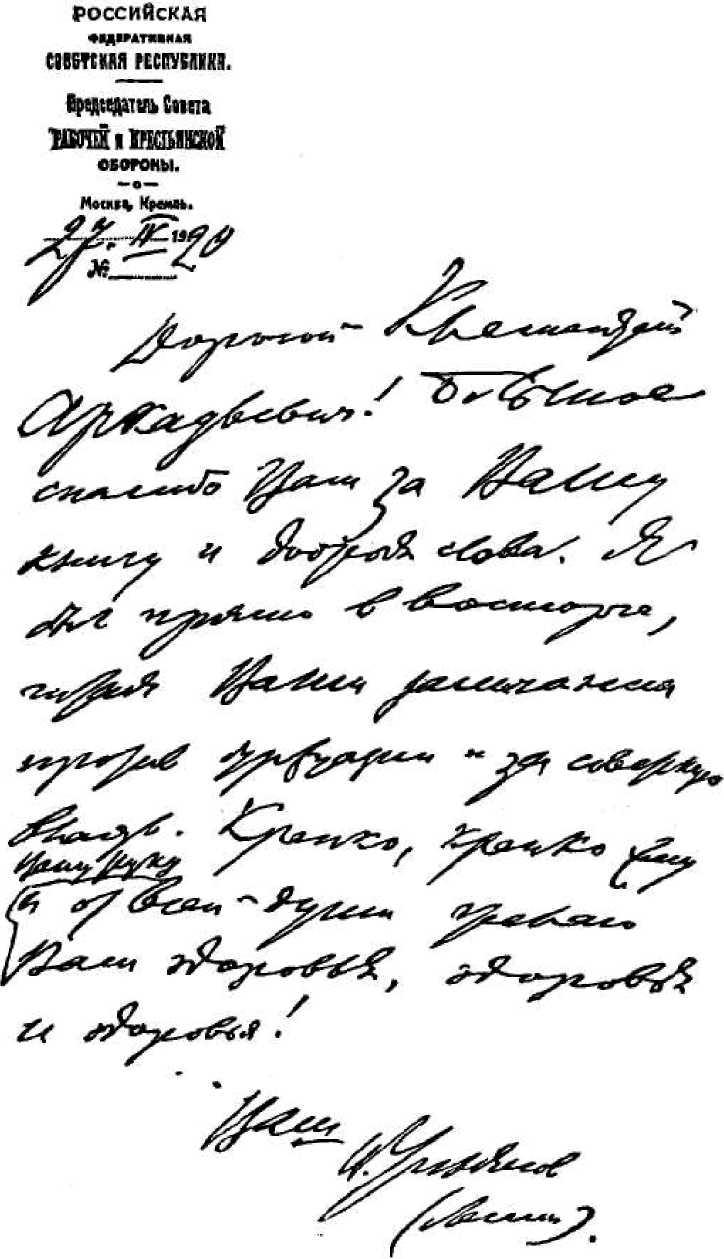 РОССИЙСКАЯ
ФЕДЕРАТИВНАЯ
СОВѢТСКАЯ РЕСПУБЛИКА.
Предсѣдатель Совѣта
РАБОЧЕЙ и КРЕСТЬЯНСКОЙ
ОБОРОНЫ.
Москва, Кремль.
27. IV 1920
№
Дорогой Климентий
Аркадьевич! Большое
спасибо Вам за Вашу
книгу и добрые слова. Я
был прямо в восторге,
читая Ваши замечания
против буржуазии и за советскую
власть. Крепко, крепко жму
Вашу руку
и от всей души желаю
Вам здоровья, здоровья
и здоровья!
Ваш
В. Ульянов
(Ленин).